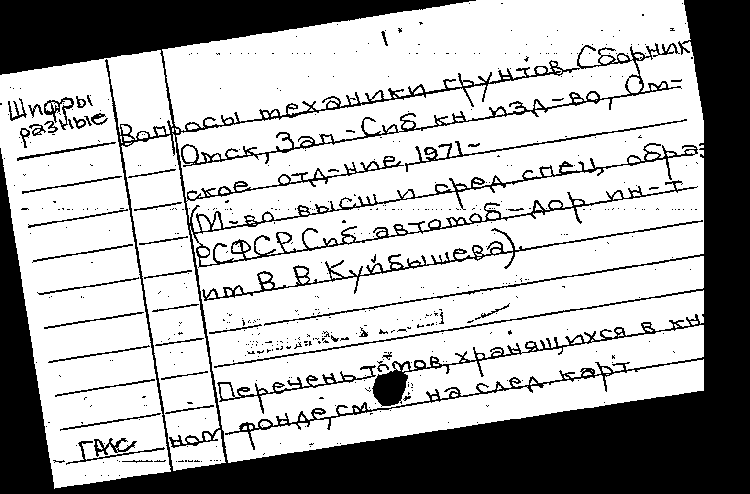 Шифры
разные
Вопросы механики грунтов. Сборник.
Омск, Зап.-Сиб. кн. изд-во, Ом-
ское отд-ние, 1971-
(М-во высш. и сред. спец. образ.
РСФСР. Сиб. автомоб.-дор. ин-т
им. В. В. Куйбышева).
Перечень томов, хранящихся в кн
ном фонде, см. на след. карт.